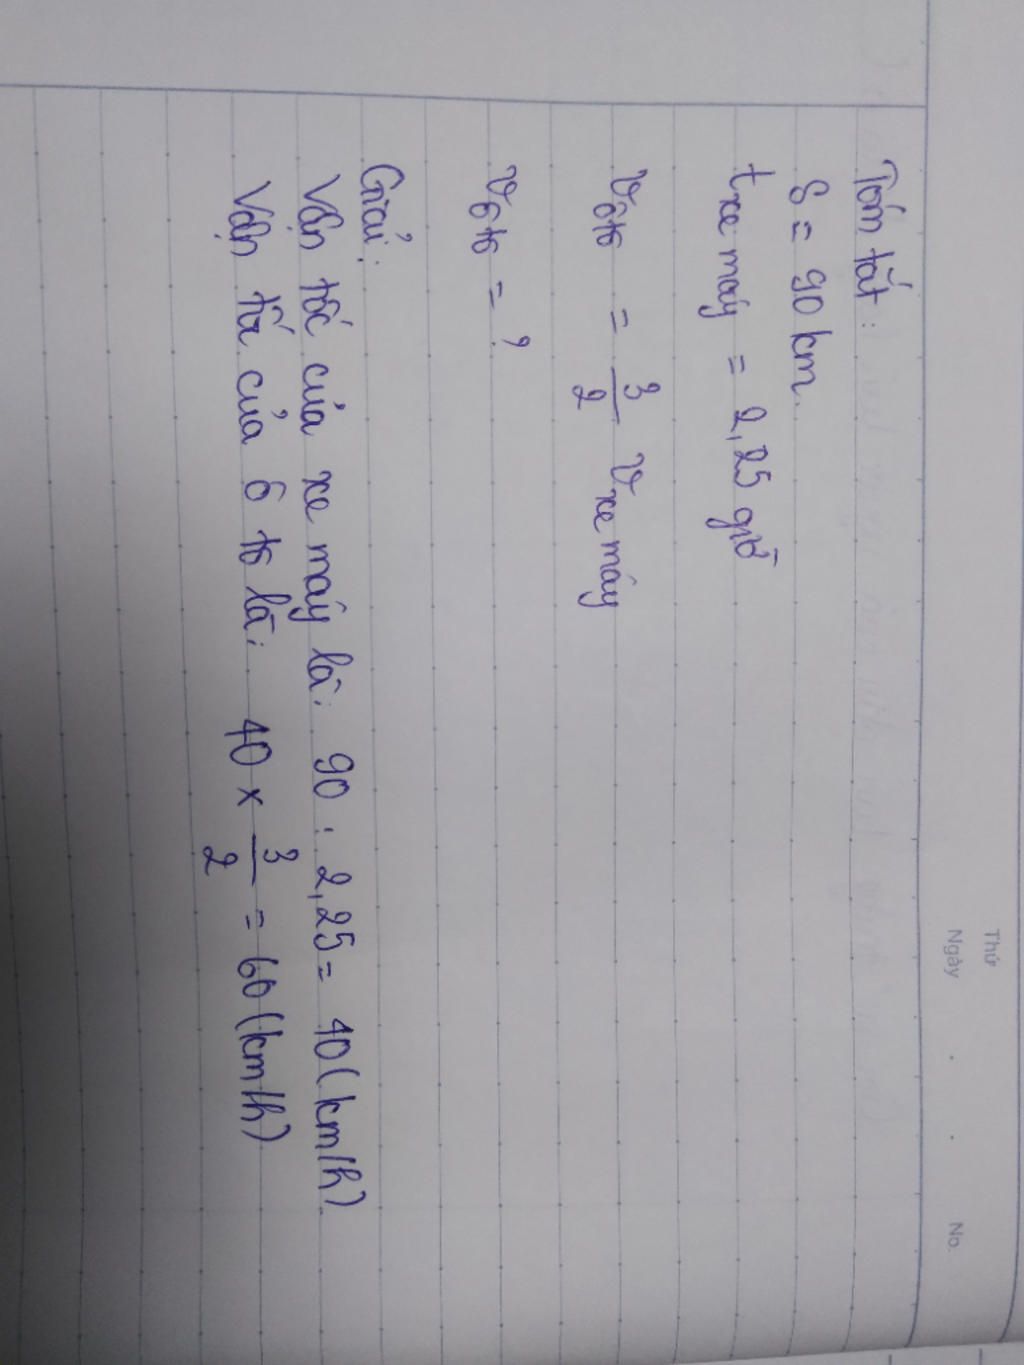 Thứ
Ngày . . No.
Tóm tắt:
S = 90 km.
t xe máy = 2,25 giờ
v ô tô = 3/2 v xe máy
v ô tô = ?
Giải:
Vận tốc của xe máy là: 90 : 2,25 = 40 (km/h)
Vận tốc của ô tô là: 40 x 3/2 = 60 (km/h)